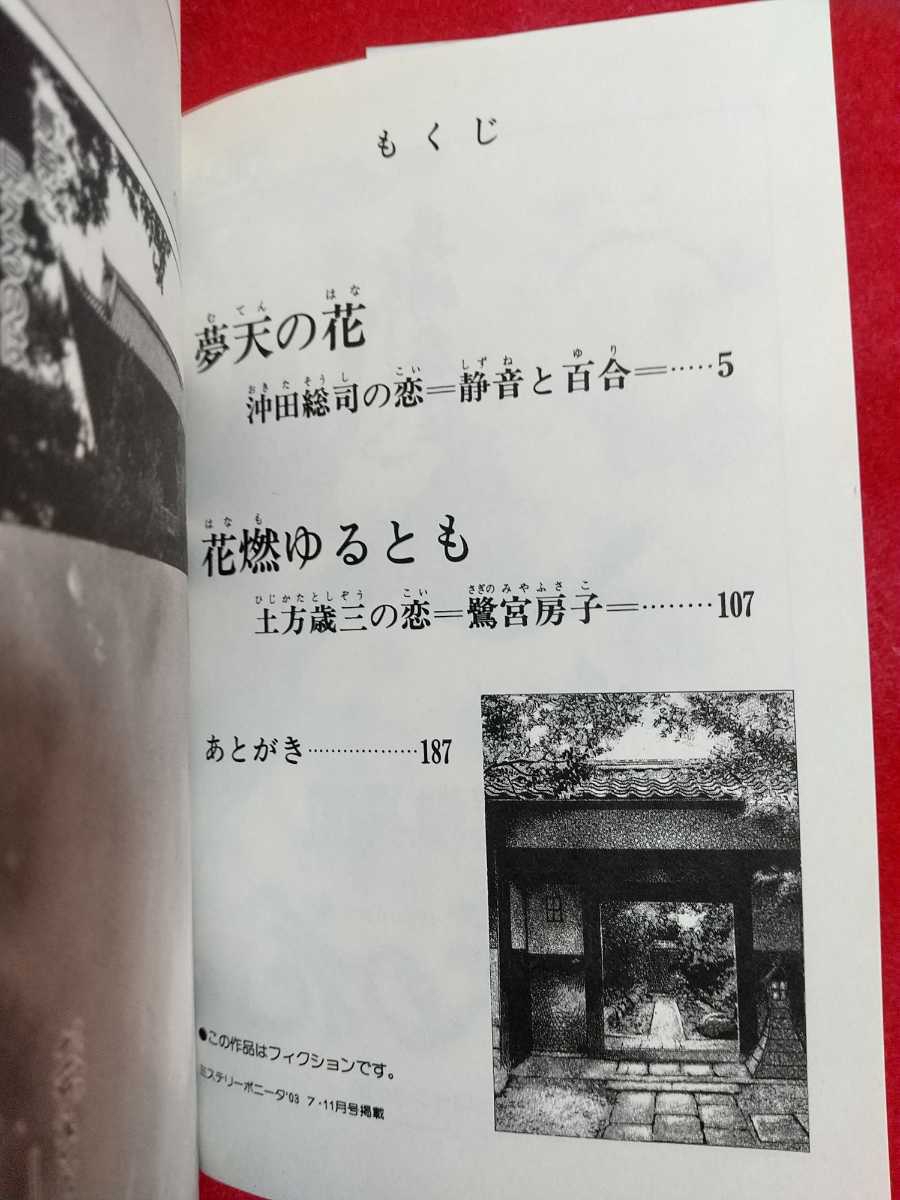 もくじ
夢天の花
沖田総司の恋=静音と百合=……5
花燃ゆるとも
土方歳三の恋=鷺宮房子=………107
あとがき………………187
●この作品はフィクションです。
ミステリーボニータ'03 7・11月号掲載